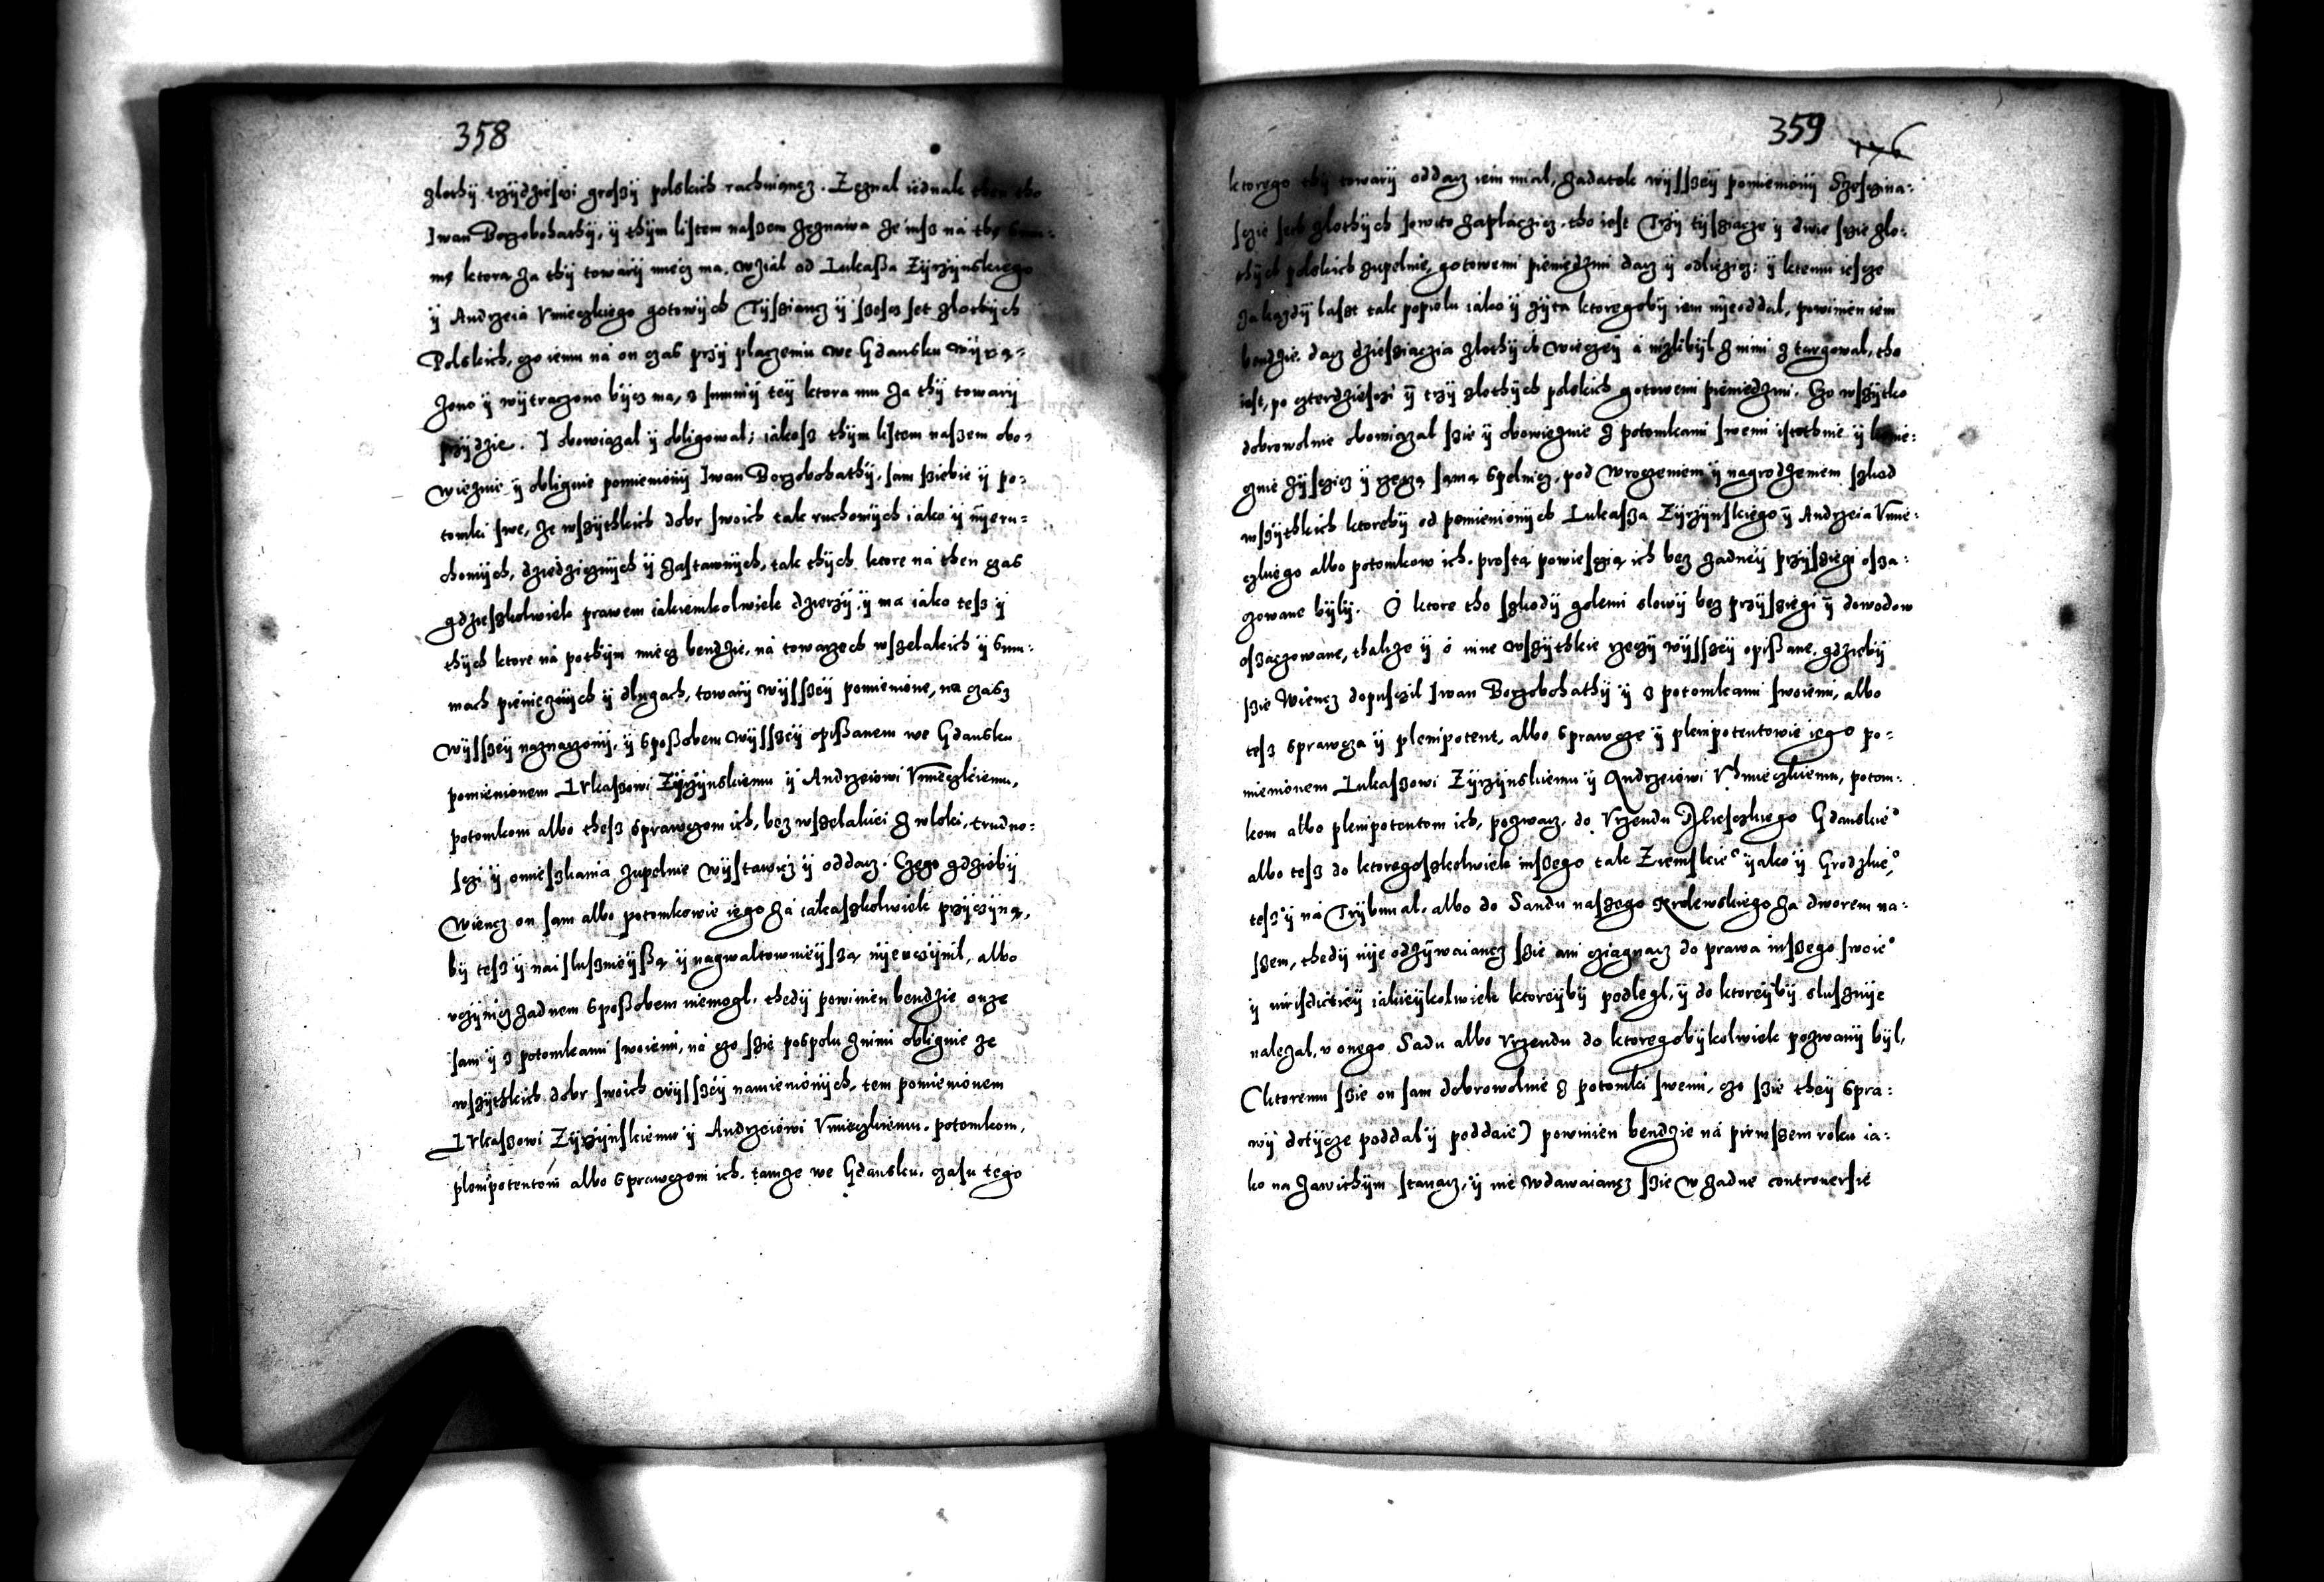 358
zlothÿ trzÿdziesczi groszÿ polskich rachuiancz. Zeznal iednak then tho
Iwan Borzobohathÿ, ÿ thÿm listem naszem zeznawa ze iusz ná thę Sum:
mę ktora za thÿ towarÿ miecz ma, wziąl od Lukaßa Zÿrzÿnskiego
ÿ Andrzeiá Vnieczkiego gotowÿch Tÿsziancz ÿ szescz set zlothÿch
Polskich, czo iemu ná on czas przÿ placzeniu we Gdansku wÿra-
zono ÿ wÿtraczono bÿcz ma, z summÿ teÿ ktora mu za thÿ towarÿ
przÿdzie. I obowiązal ÿ obligowal, iakosz thÿm listem naszem obo-
wiezuie ÿ obliguie pomienionÿ Iwan Borzobohathÿ, sam sziebie ÿ po-
tomki swe, ze wszÿthkich dobr swoich tak ruchomÿch iako ÿ nÿeru-
chomÿch, dziedzicznÿch ÿ zastawnÿch, tak thÿch ktore ná then czas
gdzieszkolwiek prawem iakiemkolwiek dzierzÿ, ÿ ma iáko tesz ÿ
thÿch ktore ná pothÿm miecz bendzie, ná towarzech wszelakich ÿ Sum-
mach pieniężnÿch ÿ dlugach, towarÿ wÿsszeÿ pomienione, na czasz
wÿsszeÿ naznaczonÿ, ÿ sposzobem wÿsszeÿ opißanem we Gdansku
pomienionem Lvkaszowi Zÿrzÿnskiemu ÿ Andrzeiowi Vnieczkiemu,
potomkom albo thesz sprawczom ich, bez wszelakiei zwloki, trudno-
sczi ÿ omieszkania zupelnie wÿstawicz ÿ oddacz. Czego gdziebÿ
wiencz on sam albo potomkowie iego zá iakaszkolwiek przÿczÿną,
bÿ tesz ÿ naisluszniéÿßą ÿ nagwaltownieÿszą nÿe vczÿnil, albo
vczÿnicz zadnem spoßobem niemogl, thedÿ powinien bendzie onze
sam ÿ z potomkami swoiemi, ná czo szię pospolu z nimi obliguie ze
wszÿthkich dobr swoich wÿsszeÿ namienionÿch, tem pomienionem
Lvkaszowi Zÿrzÿnskiemu ÿ Andrzeiowi Vnieczkiemu, potomkom,
plenipotentom albo sprawczom ich, tamze we Gdansku, czasu tego
359
ktorego thÿ towarÿ oddacz iem mial, zadatek wÿsszeÿ pomienionÿ Szesczna-
scie seth zlothÿch sowito zaplaczicz, tho iest Trzÿ tÿsziącze ÿ dwie szcie zlo-
thÿch polskich zupelnie, gotowemi pieniedzmi dacz ÿ odliczicz: ÿ ktemu iescze
za kazdÿ laszt tak popiolu iako ÿ zÿta ktoregobÿ iem nÿeoddal, powinien iem
bendzie, dacz dziesziaczia zlothÿch wieczeÿ á nizlibÿl z nimi z targowal, tho
iest, po czterdziesczi ÿ trzÿ zlothÿch polskich gotowemi pieniedzmi. Czo wszÿtko
dobrowolnie obowiązal szie ÿ obowiezuie z potomkami swemi istothnie ÿ
sczicz ÿ rzeczą samą spelnicz, pod wroczeniem ÿ nagrodzeniem szkod
wszÿthkich ktorebÿ od pomienionÿch Lukasza Zÿrzÿnskiego ÿ Andrzeia Vnie-
czkiego albo potomkow ich, prostą powiesczią ich bez zadneÿ przÿsziegi osza-
czowane bÿlÿ. O ktore tho szkodÿ golemi slowÿ bez przÿsziegi ÿ dowodow
oszaczowane, thakze ÿ ó inne wszÿthkie rzeczÿ wÿsszeÿ opißane, gdziebÿ
szie wiencz dopusczil Iwan Borzobohathÿ ÿ z potomkami swoiemi, albo
tesz sprawcza ÿ plenipotent, albo sprawcze ÿ plenipotentowie iego po-
mienionem Lukaszowi Zÿrzÿnskiemu ÿ Andrzeiowi Vhnieczkiemu, potom-
kom albo plenipotentom ich, pozwacz, do Vrzendu Miesczkiego Gdanskieº
albo tesz do ktoregoszkolwiek inszego tak Ziemskieº ÿako ÿ Grodzkieº,
tesz ÿ ná Trÿbunal, albo do Sandu naszego Krolewskiego za dworem na-
szem, thedÿ nÿe odzÿwaiancz szie ani cziągnącz do prawa inszego swoieº
ÿ iurisdictieÿ iakieÿkolwiek ktoreÿbÿ podlegl, ÿ do ktoreÿbÿ slusznÿe
nalezal, v onego Sadu albo Vrzendu do ktoregobÿkolwiek pozwanÿ bÿl,
(Ktoremu szie on sam dobrowolnie z potomki swemi, czo szie theÿ spra-
wÿ dotÿcze poddal ÿ poddaie) powinien bendzie ná pirwszem roku ia-
ko na zawithÿm stanacz, ÿ nie wdawaiancz szie w zadne controuersie